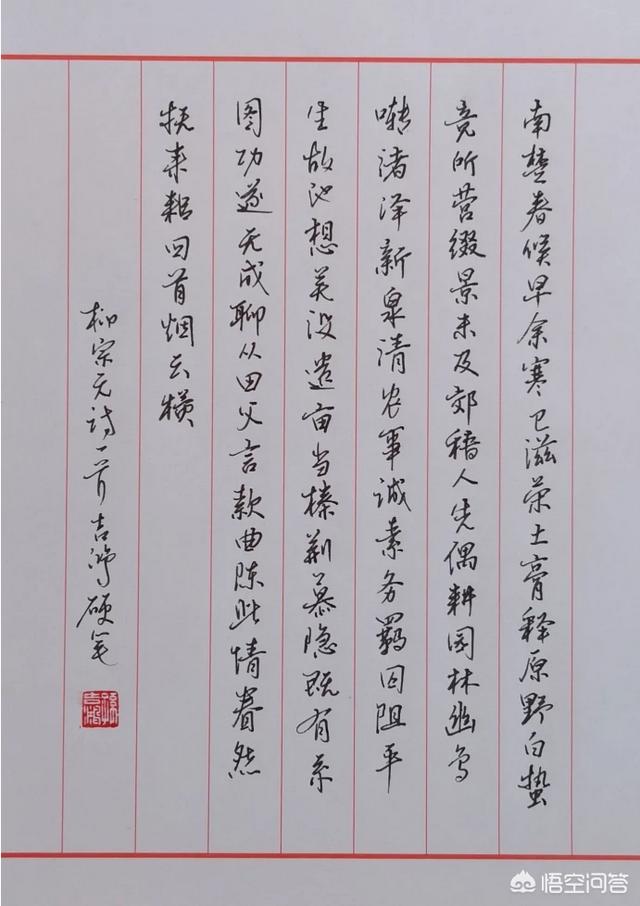 南楚春候早余寒已滋荣土膏释原野白蛰
竞所营缀景未及郊穑人先偶耕园林幽鸟
啭渚泽新泉清农事诚素务羁囚阻平
生故池想芜没遗亩当榛荆慕隐既有系
图功遂无成聊从田父言款曲陈此情眷然
抚耒耜回首烟云横
柳宗元诗一首吉鸿硬笔
悟空问答